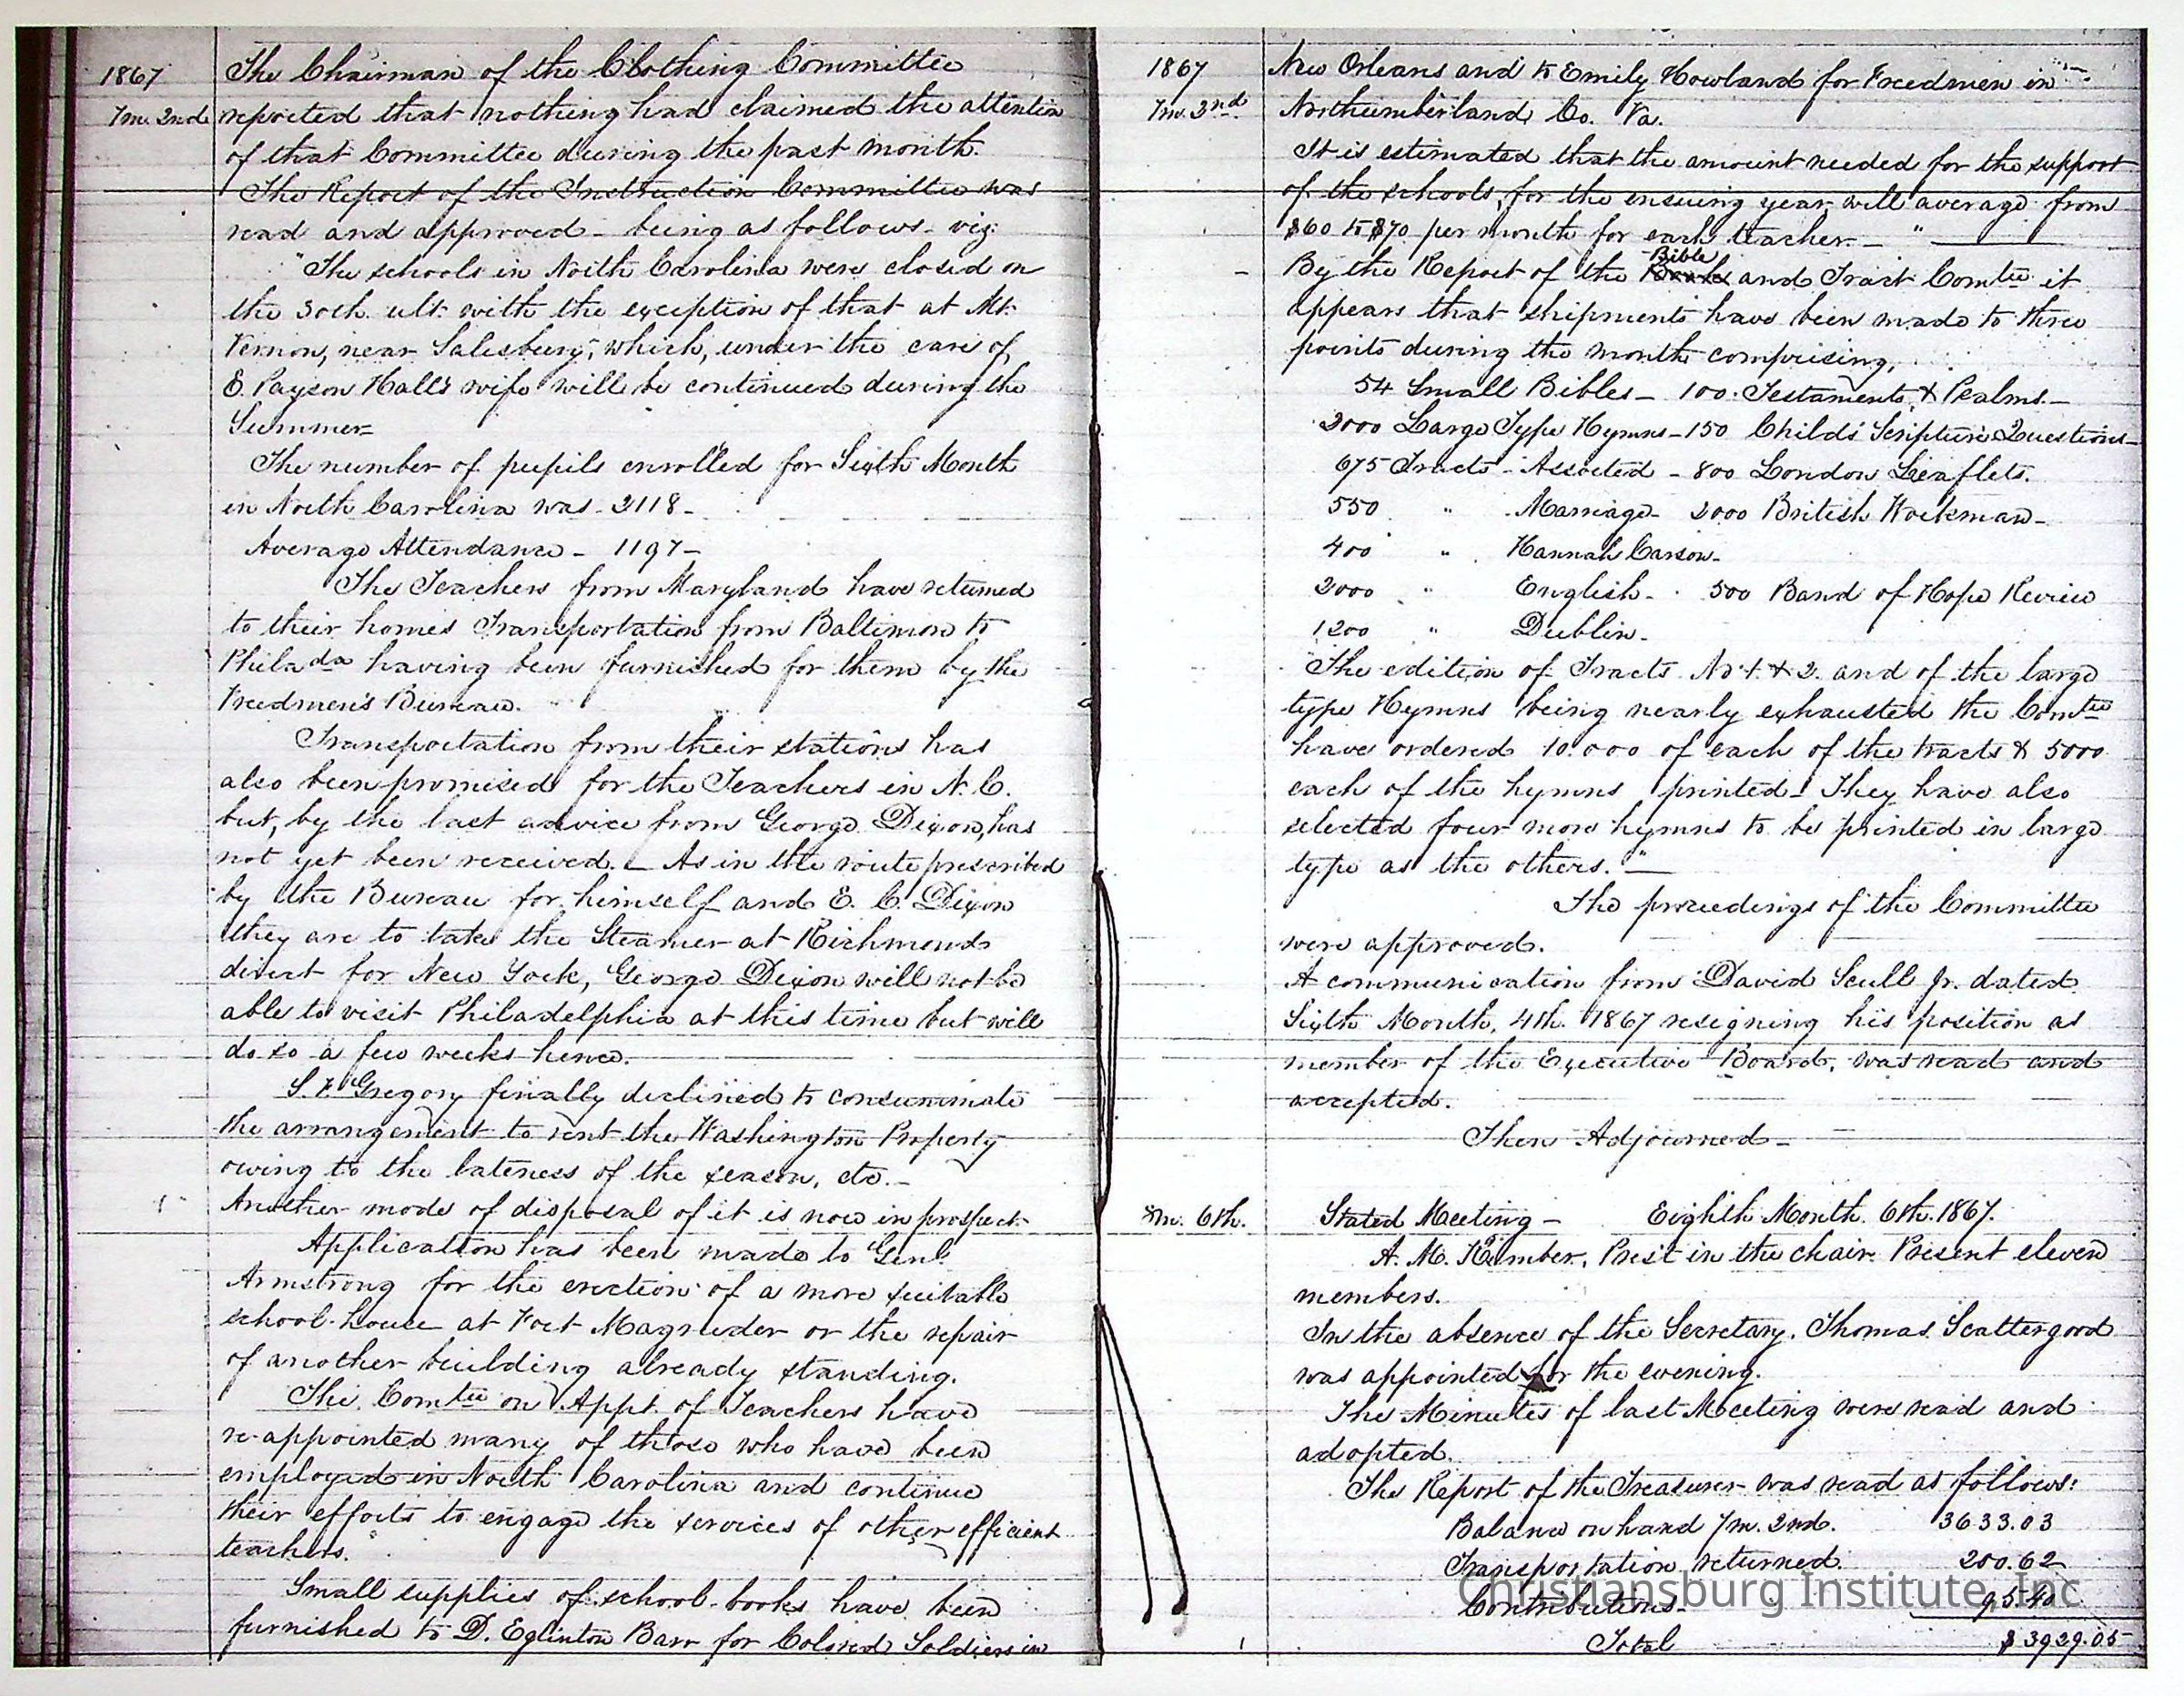 1867
7m. 2nd
The Chairman of the Clothing Committee
reported that nothing had claimed the attention
of that Committee during the past month.
The Report of the Instruction Committee was
read and approved - being as follows - viz:
"The schools in North Carolina were closed on
the 30th. ult. with the exception of that at Mt.
Vernon, near Salisbury, which, under the care of
E. Payson Hall's wife will be continued during the
Summer-
The number of pupils enrolled for Sixth Month
in North Carolina was - 2118 -
Average Attendance - 1197 -
The Teachers from Maryland have returned
to their homes Transportation from Baltimore to
Philada having been furnished for them by the
Freedmen's Bureau.
Transportation from their stations has
also been promised for the Teachers in N. C.
but, by the last advice from George Dixon, has
not yet been received. - As in the route prescribed
by the Bureau for himself and E. C. Dixon
they are to take the Steamer at Richmond
direct for New York, George Dixon will not be
able to visit Philadelphia at this time but will
do so a few weeks hence.
S. F. Gregory finally declined to consummate
the arrangement to rent the Washington Property
owing to the lateness of the season, etc. -
Another mode of disposal of it is now in prospect.
Application has been made to Genl.
Armstrong for the erection of a more suitable
school-house at Fort Magruder or the repair
of another building already standing.
The Comtee on Appt. of Teachers have
re-appointed many of those who have been
employed in North Carolina and continue
their efforts to engage the services of other efficient
teachers."
Small supplies of school-books have been
furnished to D. Eglinton Barr for Colored Soldiers in
1867
7m. 2nd.
New Orleans and to Emily Howland for Freedmen in
Northumberland Co. Va.
It is estimated that the amount needed for the support
of the schools, for the ensuing year, will average from
$60 to $70 per month for each teacher - "
Bible
By the Report of the and Tract Comtee it
appears that shipments have been made to three
points during the month comprising,
54 Small Bibles - 100 Testaments & Psalms. -
2000 Large Type Hymns - 150 Childs' Scripture Questions -
675 Tracts - Assorted - 800 London Leaflets.
550 " Marriage - 2000 British Workman -
400 " Hannah Carson -
2000 " English - 500 Band of Hope Review
1200 " Dublin -
The edition of Tracts No 1. & 2. and of the large
type Hymns being nearly exhausted the Comtee
have ordered 10.000 of each of the tracts & 5000
each of the hymns printed - They have also
selected four more hymns to be printed in large
type as the others." -
The proceedings of the Committee
were approved.
A communication from David Scull Jr. dated
Sixth Month, 4th. 1867 resigning his position as
member of the Executive Board, was read and
accepted.
Then Adjourned -
8m. 6th.
Stated Meeting - Eighth Month. 6th. 1867.
A. M. Kimber, Prest in the chair. Present eleven
members.
In the absence of the Secretary, Thomas Scattergood
was appointed for the evening.
The Minutes of last Meeting were read and
adopted.
The Report of the Treasurer was read as follows:
Balance on hand 7m. 2nd. 3633.03
Transportation returned. 200.62
Contributions - 95.40
Total $3929.05
Christiansburg Institute, Inc